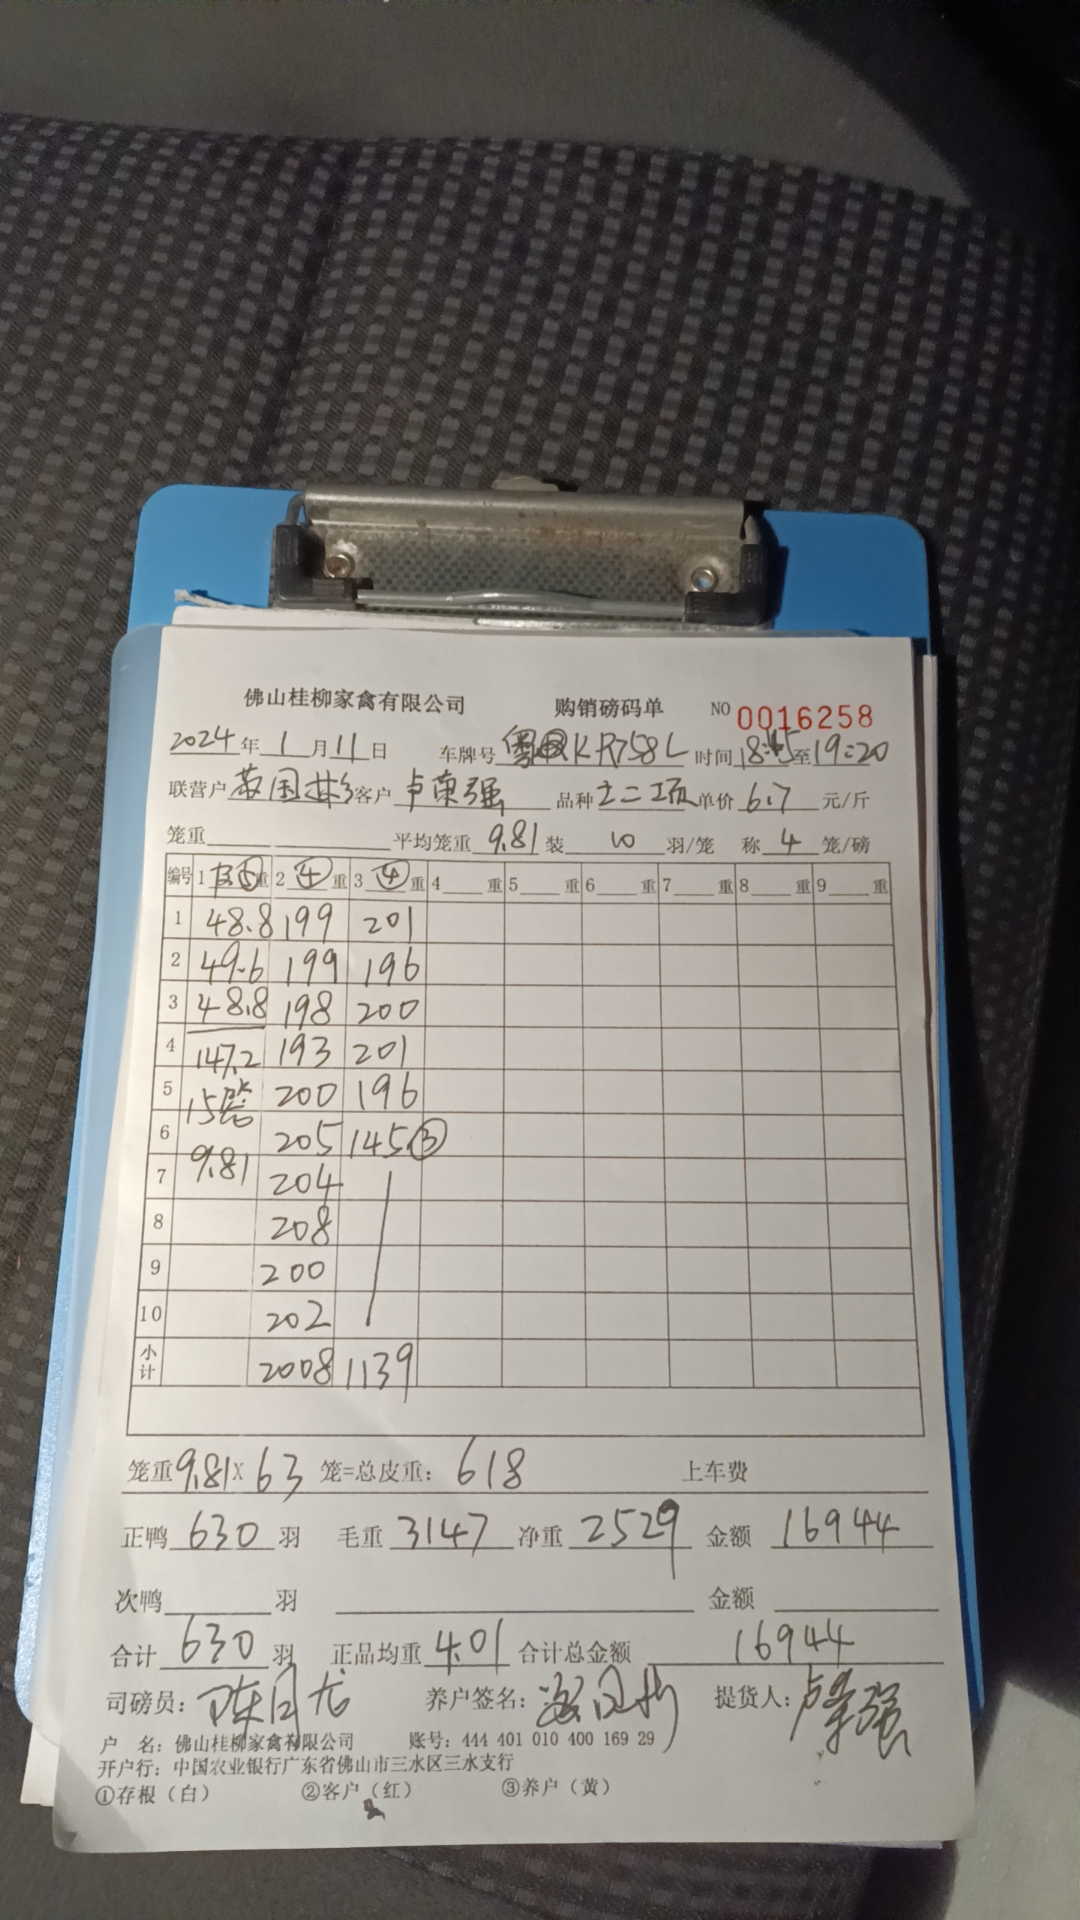 佛山桂柳家禽有限公司 购销磅码单 NO 0016258
2024年1月11日 车牌号 粤KR758L 时间18:45至19:20
联营户 国彬 客户 卢荣强 品种 土二项 单价 6.7 元/斤
笼重 平均笼重 9.81 装 10 羽/笼 称 4 笼/磅
编号 1 皮⑤重 2 ④ 重 3 ④ 重 4 重 5 重 6 重 7 重 8 重 9 重
1 48.8 199 201
2 49.6 199 196
3 48.8 198 200
4 147.2 193 201
5 15笼 200 196
6 205 145③
7 9.81 204
8 208
9 200
10 202
小计 2008 1139
笼重9.81X 63 笼=总皮重: 618 上车费
正鸭 630 羽 毛重 3147 净重 2529 金额 16944
次鸭 羽 金额
合计 630 羽 正品均重 4.01 合计总金额 16944
司磅员: 陈月龙 养户签名: 提货人: 卢荣强
户 名: 佛山桂柳家禽有限公司 账号: 444 401 010 400 169 29
开户行: 中国农业银行广东省佛山市三水区三水支行
①存根（白） ②客户（红） ③养户（黄）